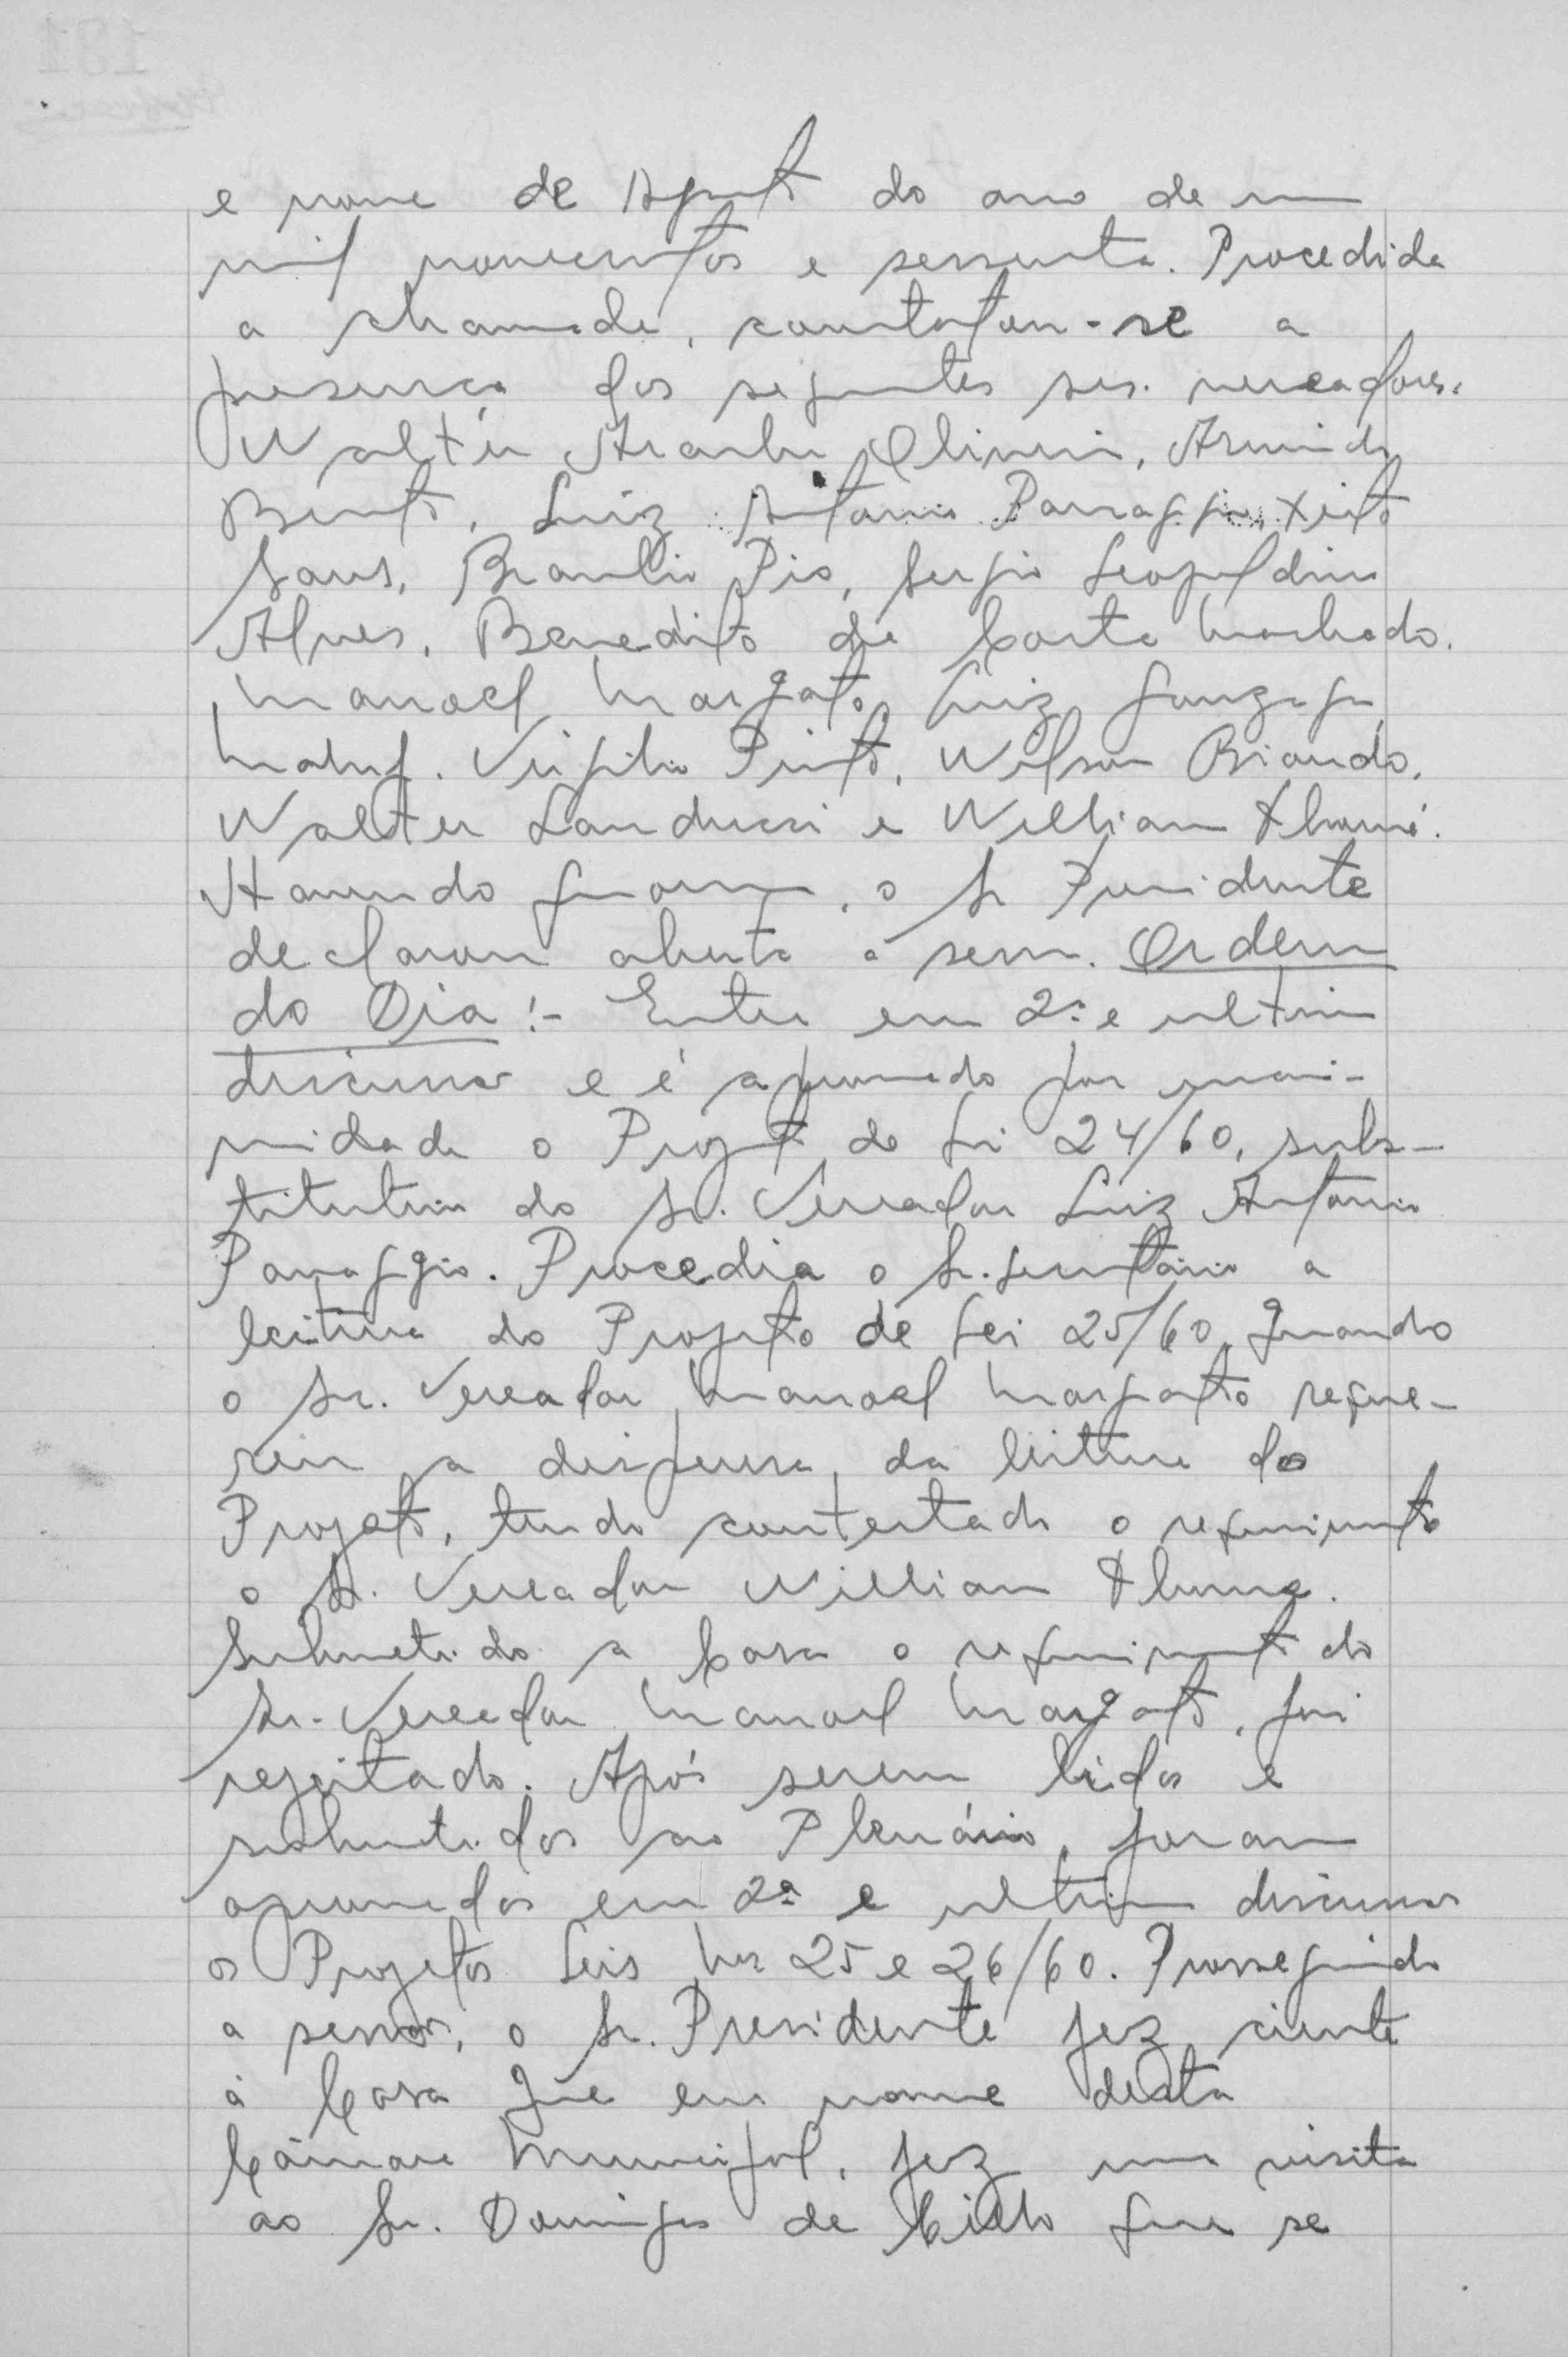 e nove de Agosto do ano de um
mil novecentos e sessenta. Procedida
a chamada, constatou-se a
presença dos seguintes srs. vereadores:
Walter Oliveira, Armindo
Bento, Luiz Antonio Panaggio, Xisto
Braulio Pio, Sergio Leopoldino
Alves, Benedito da Costa Machado,
Manoel Margato, Luiz Gonzaga
Maluf, Virgilio Pinto, Wilson Biondo,
Walter Landucci e Willian Thomé.
Havendo numero, o Sr Presidente
declarou aberta a sessão. Ordem
do Dia:- Entra em 2ª e ultima
discussão e é aprovado por unani-
midade o Projeto de Lei 24/60, subs-
titutivo do Sr. Vereador Luiz Antonio
Panaggio. Procedia o Sr. Secretário a
leitura do Projeto de Lei 25/60, quando
o Sr. Vereador Manoel Margato reque-
reu a dispensa da leitura do
Projeto, tendo contestado o requerimento
o Sr. Vereador Willian Thomé.
Submetido a Casa o requerimento do
Sr. Vereador Manoel Margato, foi
rejeitado. Após serem lidos e
submetidos ao Plenário, foram
aprovados em 2ª e ultima discussão
os Projetos Leis nos 25 e 26/60. Prosseguindo
a sessão, o Sr. Presidente fez ciente
à Casa que em nome desta
Câmara Municipal, fez uma visita
ao Sr. Domingos de que se